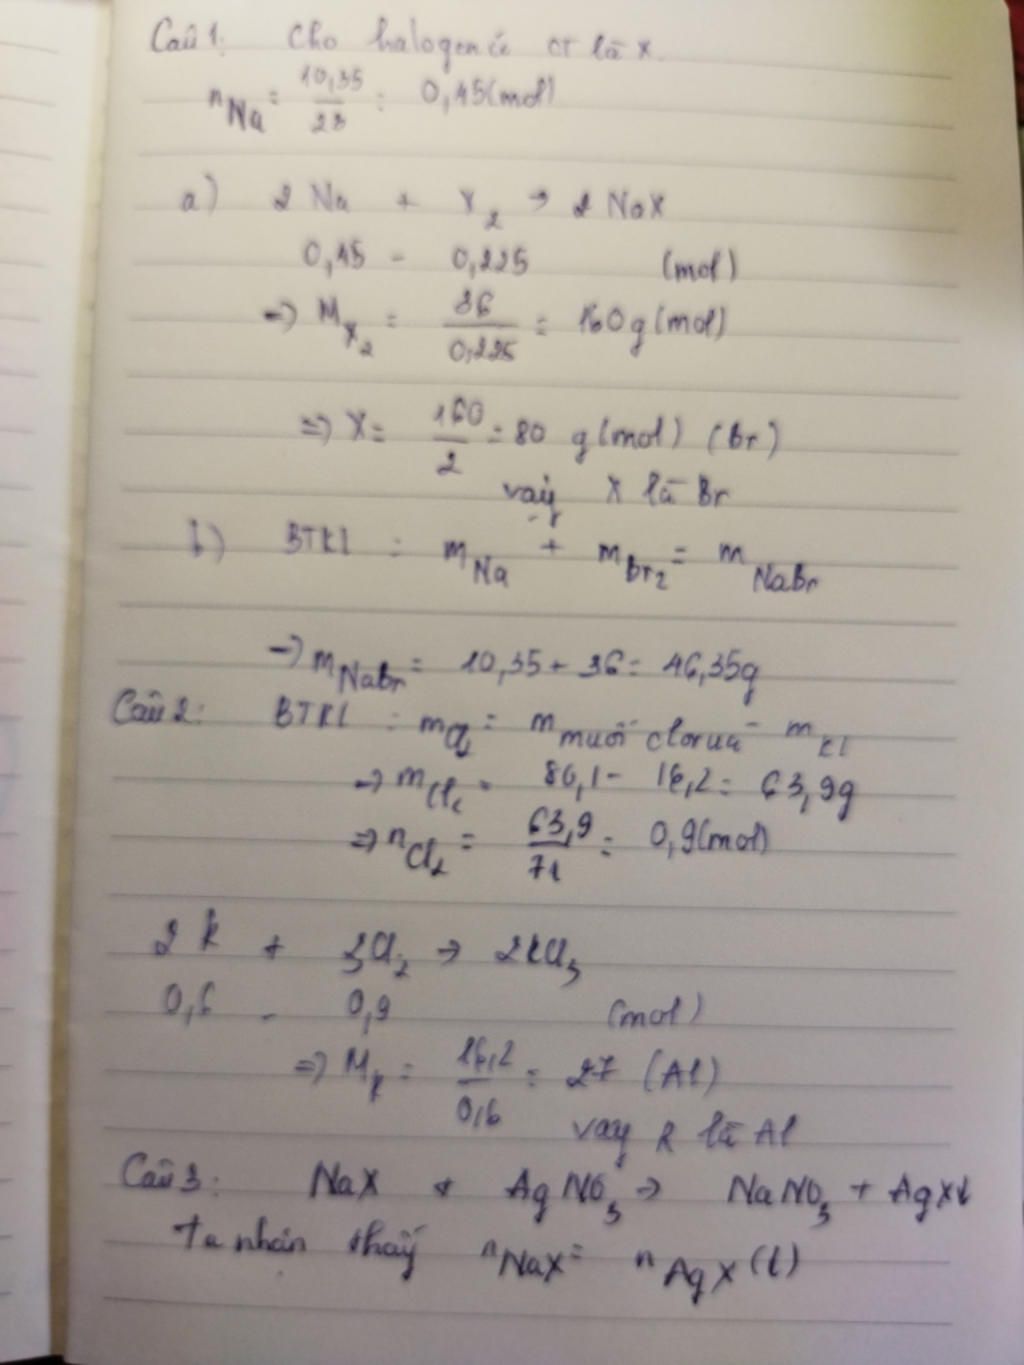 Câu 1: Cho halogen có CT là X.
nNa = 10,35/23 = 0,45(mol)
a) 2 Na + X2 → 2 NaX
0,45 - 0,225 (mol)
→ MX2 = 36/0,225 = 160g(mol)
=> X = 160/2 = 80 g(mol) (Br)
vậy X là Br
b) BTKL : mNa + mBr2 = mNaBr
→ mNaBr = 10,35 + 36 = 46,35g
Câu 2: BTKL : mCl2 = mmuối clorua - mKl
→ mCl2 = 80,1 - 16,2 = 63,9g
=> nCl2 = 63,9/71 = 0,9(mol)
2 R + 3Cl2 → 2RCl3
0,6 - 0,9 (mol)
=> MR = 16,2/0,6 = 27 (Al)
vay R là Al
Câu 3: NaX + AgNO3 → NaNO3 + AgX↓
Ta nhận thấy nNaX = nAgX (↓)